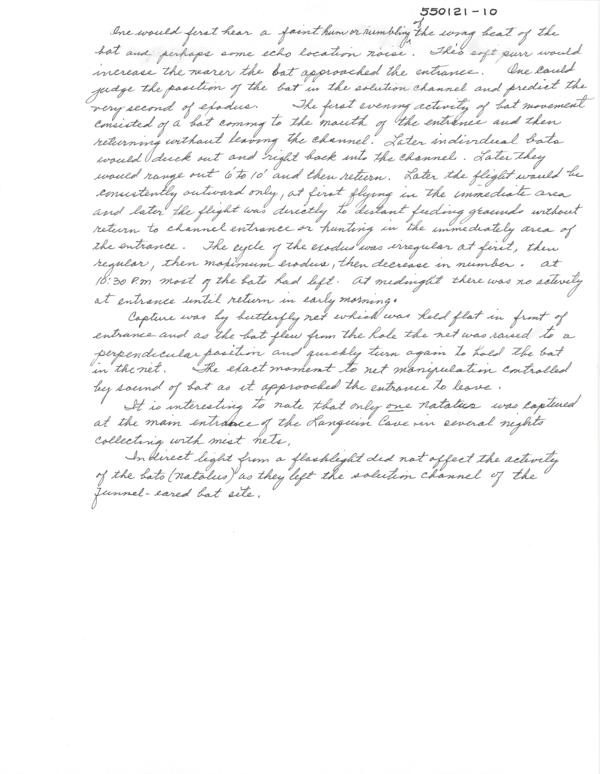 550121-10
One would first hear a faint hum or rumbling of the wing beat of the
bat and perhaps some echo location noise. This soft purr would
increase the nearer the bat approached the entrance. One could
judge the position of the bat in the solution channel and predict the
very second of exodus. The first evening activity of bat movement
consisted of a bat coming to the mouth of the entrance and then
returning without leaving the channel. Later individual bats
would duck out and right back into the channel. Later they
would range out 6' to 10' and then return. Later the flight would be
consistently outward only, at first flying in the immediate area
and later the flight was directly to distant feeding grounds without
return to channel entrance or hunting in the immediately area of
the entrance. The cycle of the exodus was irregular at first, then
regular, then maximum exodus, then decrease in number. At
10:30 P.M most of the bats had left. At midnight there was no activity
at entrance until return in early morning.
Capture was by butterfly net which was held flat in front of
entrance and as the bat flew from the hole the net was raised to a
perpendicular position and quickly turn again to hold the bat
in the net. The exact moment to net manipulation controlled
by sound of bat as it approached the entrance to leave.
It is interesting to note that only one Natalus was captured
at the main entrance of the Lanquin Cave in several nights
collecting with mist nets.
Indirect light from a flashlight did not affect the activity
of the bats (Natalus) as they left the solution channel of the
funnel-eared bat site.